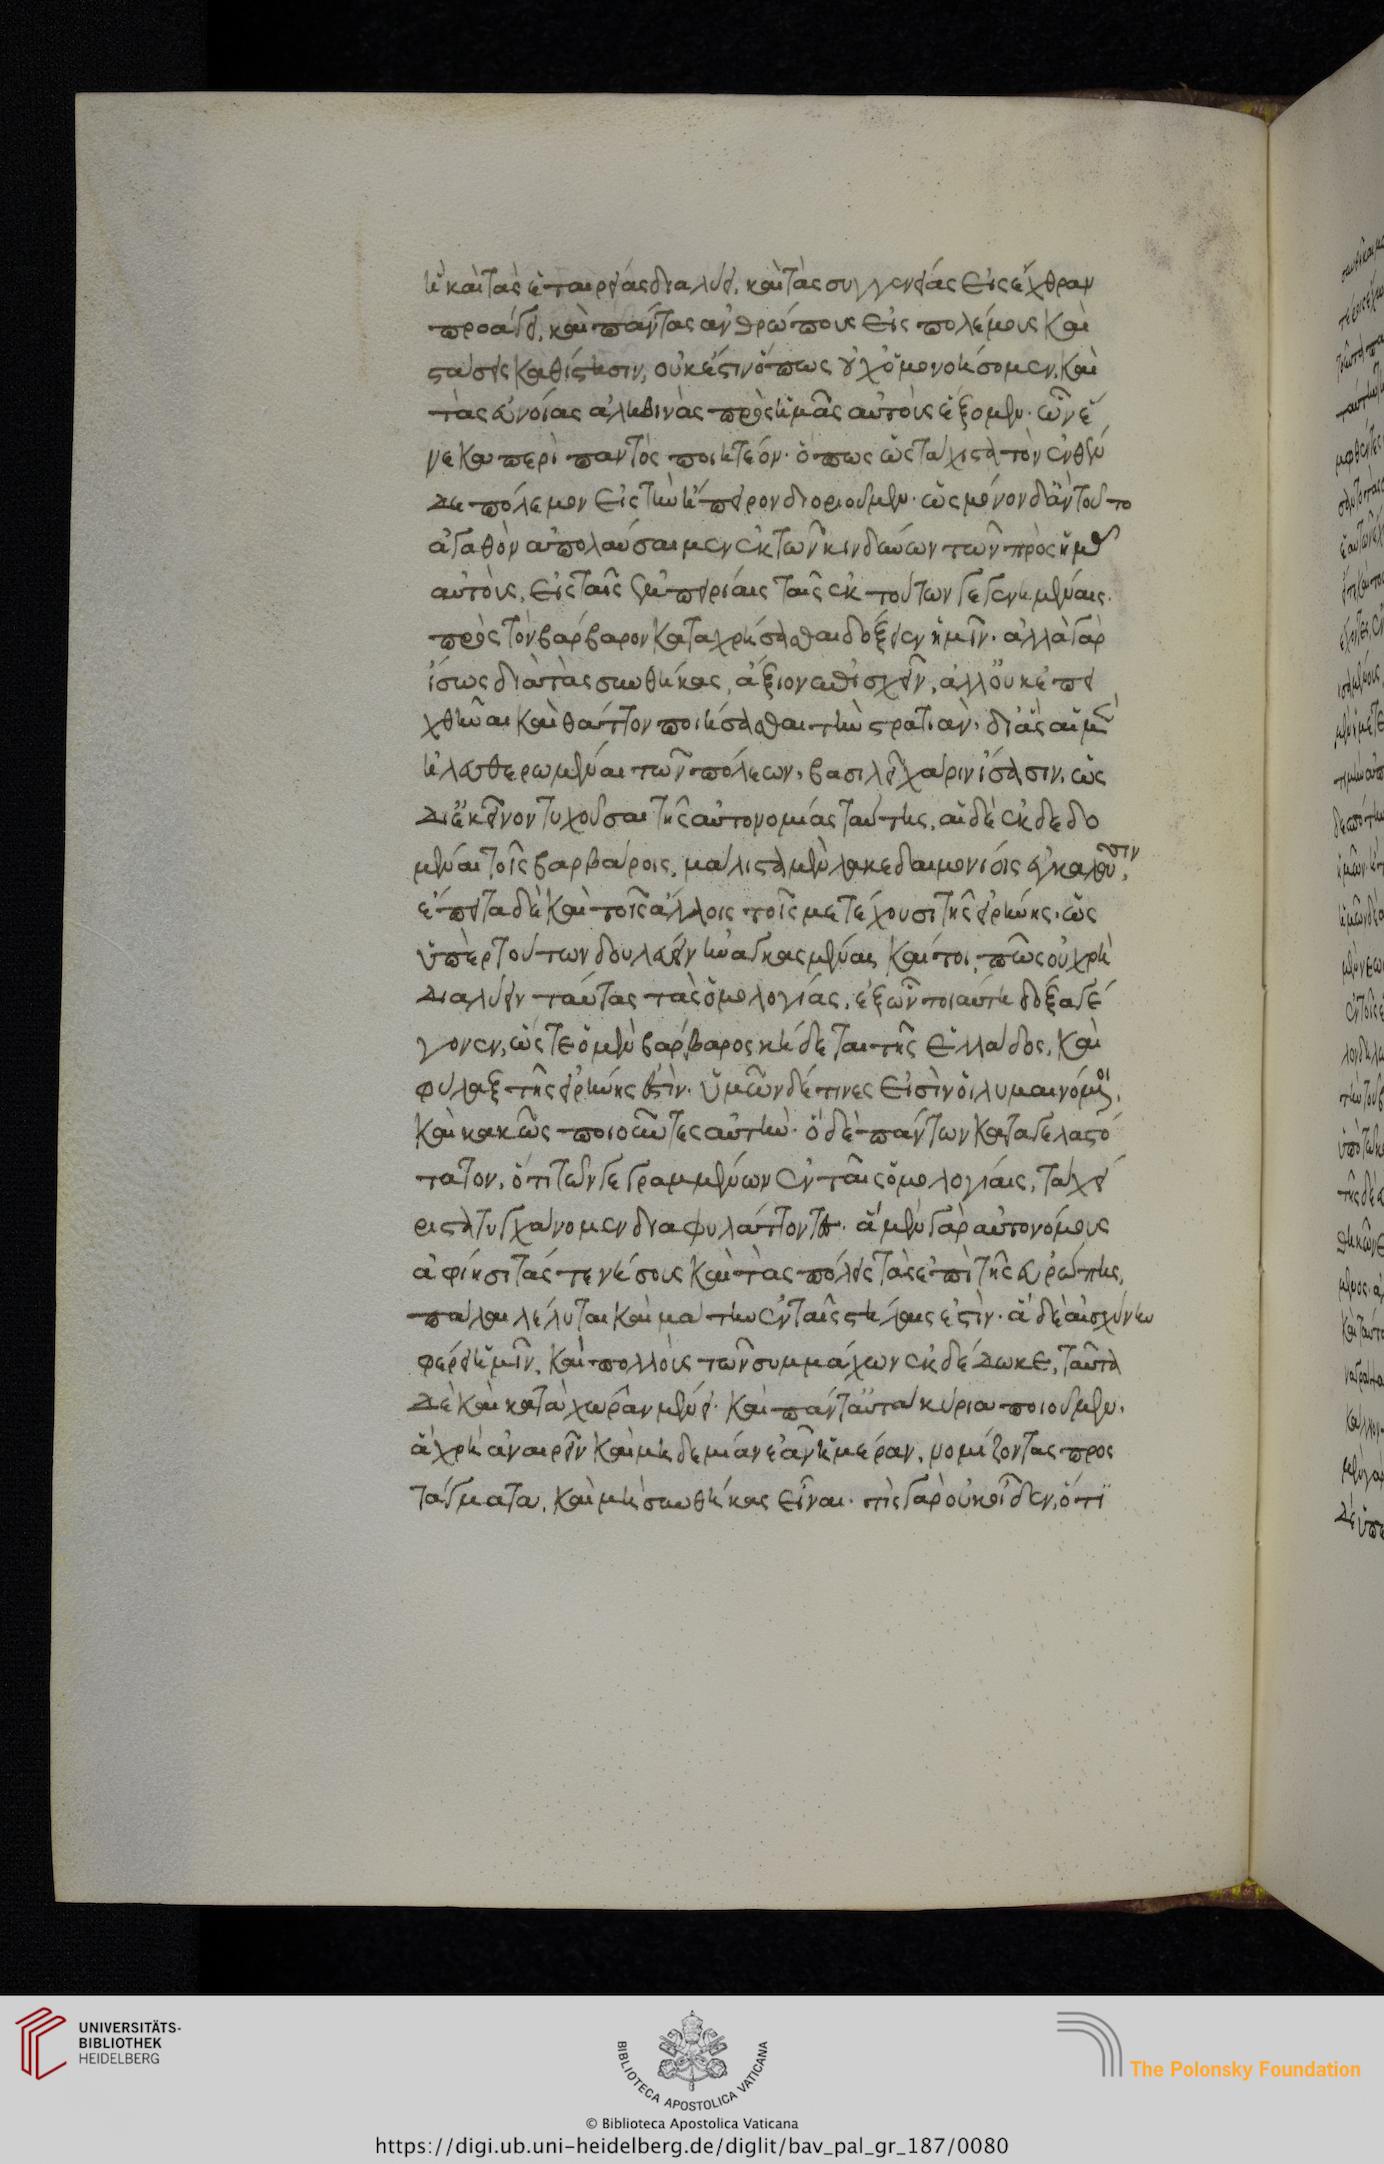 ἢ καὶ τὰς ἑταιρείας διαλύει, καὶ τὰς συγγενείας εἰς ἔχθραν
προάγει, καὶ πάντας ἀνθρώπους εἰς πολέμους καὶ
στάσεις καθίστησιν, οὐκ ἔστιν ὅπως οὐχ ὁμονοήσομεν, καὶ
τὰς εὐνοίας ἀληθινὰς πρὸς ἡμᾶς αὐτοὺς ἕξομεν. ὧν ἕ
νεκα περὶ παντὸς ποιητέον. ὅπως ὡς τάχιστα τὸν ἐνθέν
δε πόλεμον εἰς τὴν ἤπειρον διοριοῦμεν. ὡς μόνον δ' ἂν τοῦτο
ἀγαθὸν ἀπολαύσαιμεν ἐκ τῶν κινδύνων τῶν πρὸς ἡμᾶς
αὐτοὺς, εἰ ταῖς ἐμπειρίαις ταῖς ἐκ τούτων γεγενημέναις.
πρὸς τὸν βάρβαρον καταχρήσασθαι δόξειεν ἡμῖν. ἀλλὰ γὰρ
ἴσως διὰ τὰς συνθήκας, ἄξιον ἐπισχεῖν, ἀλλ' οὐκ ἐπει
χθῆναι καὶ θᾶττον ποιήσασθαι τὴν στρατιὰν. δι' ἃς αἱ μὲν
ἠλευθερωμέναι τῶν πόλεων, βασιλεῖ χάριν ἴσασιν, ὡς
δι' ἐκεῖνον τυχοῦσαι τῆς αὐτονομίας ταύτης, αἱ δὲ ἐκδεδο
μέναι τοῖς βαρβάροις, μάλιστα μὲν λακεδαιμονίοις ἐγκαλοῦσιν,
ἔπειτα δὲ καὶ τοῖς ἄλλοις τοῖς μετέχουσι τῆς εἰρήνης. ὡς
ὑπὲρ τούτων δουλεύειν ἠναγκασμέναι καίτοι, πῶς οὐ χρὴ
διαλύειν ταύτας τὰς ὁμολογίας, ἐξ ὧν τοιαύτη δόξα γέ
γονεν, ὥστε ὁ μὲν βάρβαρος κήδεται τῆς ἑλλάδος, καὶ
φύλαξ τῆς εἰρήνης ἐστὶν. ὑμῶν δέ τινες εἰσὶν οἱ λυμαινόμενοι,
καὶ κακῶς ποιοῦντες αὐτὴν. ὃ δὲ πάντων καταγελαστό
τατον, ὅτι τῶν γεγραμμένων ἐν ταῖς ὁμολογίαις, τὰ χεί
ριστα τυγχάνομεν διαφυλάττοντες. ἃ μὲν γὰρ αὐτονόμους
ἀφίησι τάς τε νήσους καὶ τὰς πόλεις τὰς ἐπὶ τῆς εὐρώπης,
πάλαι λέλυται καὶ μάτην ἐν ταῖς στήλαις ἐστὶν. ἃ δὲ αἰσχύνην
φέρει ἡμῖν, καὶ πολλοὺς τῶν συμμάχων ἐκδέδωκε, ταῦτα
δὲ καὶ κατὰ χώραν μένει. καὶ πάντ' αὐτὰ κύρια ποιοῦμεν.
ἃ χρὴ ἀναιρεῖν καὶ μηδεμίαν ἐᾶν ἡμέραν, νομίζοντας προς
τάγματα, καὶ μὴ συνθήκας εἶναι. τὶς γὰρ οὐκ οἶδεν, ὅτι
UNIVERSITÄTS-
BIBLIOTHEK
HEIDELBERG
BIBLIOTECA APOSTOLICA VATICANA
The Polonsky Foundation
© Biblioteca Apostolica Vaticana
https://digi.ub.uni-heidelberg.de/diglit/bav_pal_gr_187/0080